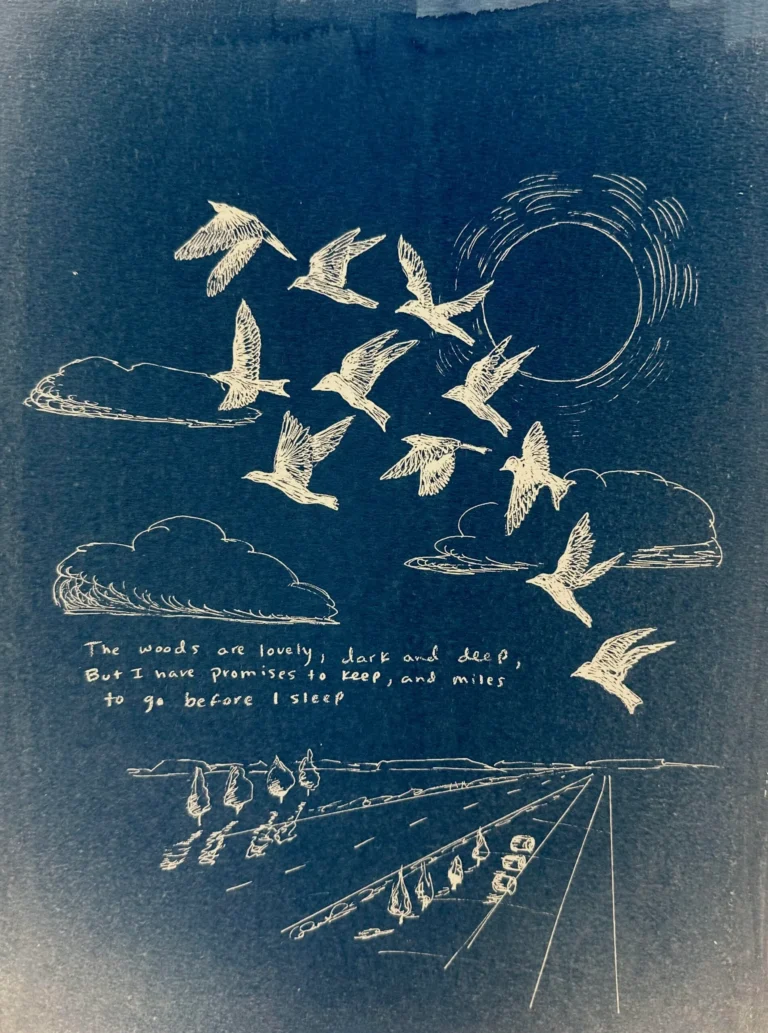 The woods are lovely, dark and deep,
But I have promises to keep, and miles
to go before I sleep